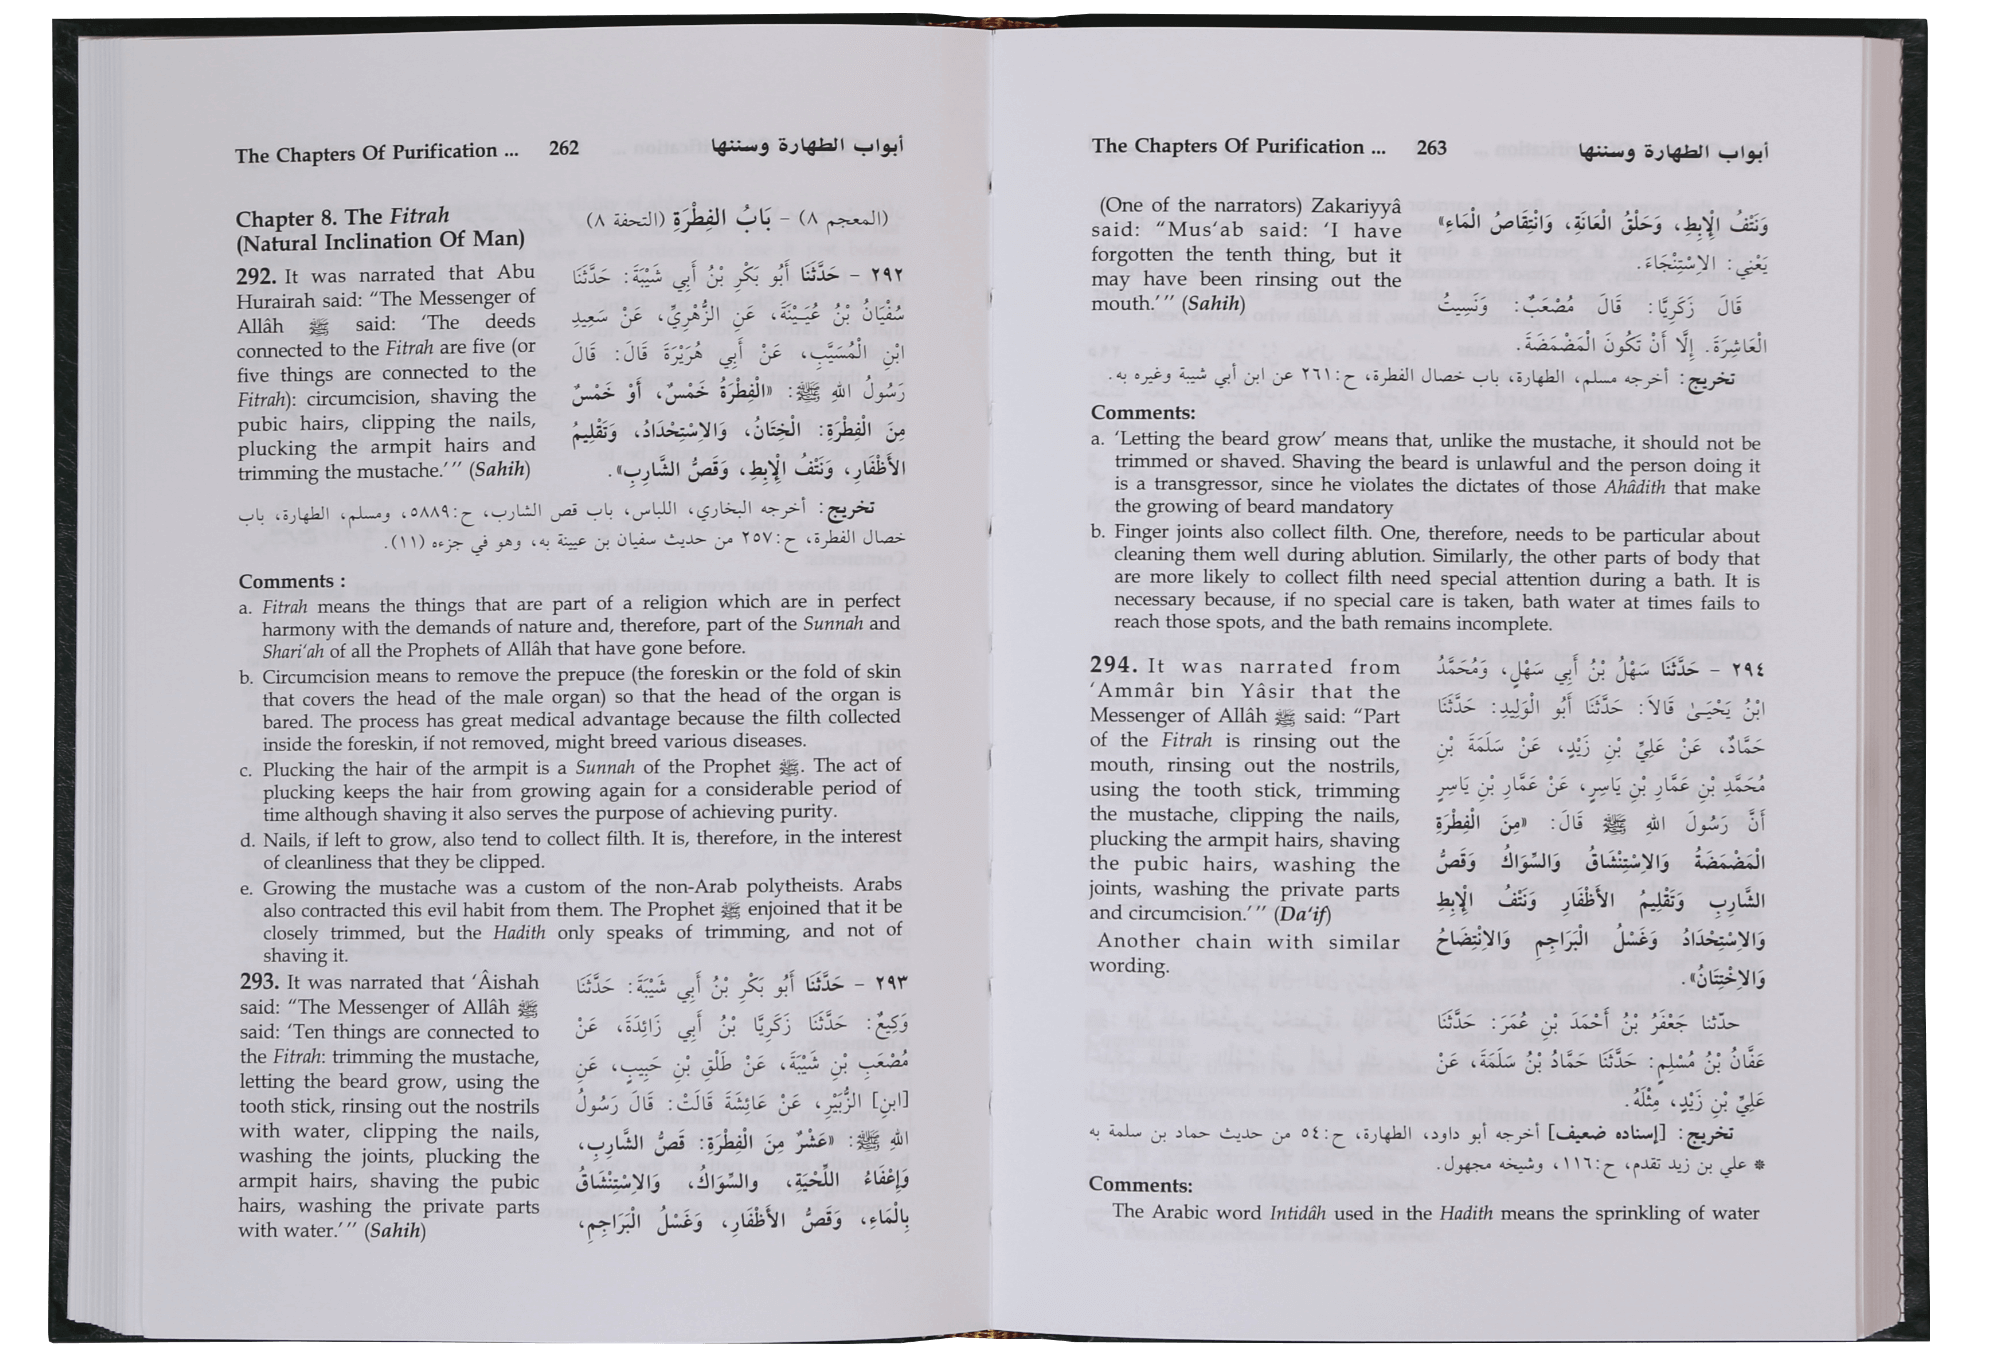 The Chapters Of Purification ... 262 أبواب الطهارة وسننها
Chapter 8. The Fitrah
(Natural Inclination Of Man)
(المعجم ٨) - بَابُ الفِطْرَةِ (التحفة ٨)
292. It was narrated that Abu
Hurairah said: “The Messenger of
Allâh ﷺ said: ‘The deeds
connected to the Fitrah are five (or
five things are connected to the
Fitrah): circumcision, shaving the
pubic hairs, clipping the nails,
plucking the armpit hairs and
trimming the mustache.’” (Sahih)
٢٩٢ - حَدَّثَنَا أَبُو بَكْرِ بْنُ أَبِي شَيْبَةَ: حَدَّثَنَا
سُفْيَانُ بْنُ عُيَيْنَةَ، عَنِ الزُّهْرِيِّ، عَنْ سَعِيدِ
ابْنِ الْمُسَيَّبِ، عَنْ أَبِي هُرَيْرَةَ قَالَ: قَالَ
رَسُولُ اللهِ ﷺ: «الْفِطْرَةُ خَمْسٌ، أَوْ خَمْسٌ
مِنَ الْفِطْرَةِ: الْخِتَانُ، وَالاِسْتِحْدَادُ، وَتَقْلِيمُ
الأَظْفَارِ، وَنَتْفُ الإِبِطِ، وَقَصُّ الشَّارِبِ».
تخريج: أخرجه البخاري، اللباس، باب قص الشارب، ح:٥٨٨٩، ومسلم، الطهارة، باب
خصال الفطرة، ح:٢٥٧ من حديث سفيان بن عيينة به، وهو في جزءه (١١).
Comments :
a. Fitrah means the things that are part of a religion which are in perfect
harmony with the demands of nature and, therefore, part of the Sunnah and
Shari‘ah of all the Prophets of Allâh that have gone before.
b. Circumcision means to remove the prepuce (the foreskin or the fold of skin
that covers the head of the male organ) so that the head of the organ is
bared. The process has great medical advantage because the filth collected
inside the foreskin, if not removed, might breed various diseases.
c. Plucking the hair of the armpit is a Sunnah of the Prophet ﷺ. The act of
plucking keeps the hair from growing again for a considerable period of
time although shaving it also serves the purpose of achieving purity.
d. Nails, if left to grow, also tend to collect filth. It is, therefore, in the interest
of cleanliness that they be clipped.
e. Growing the mustache was a custom of the non-Arab polytheists. Arabs
also contracted this evil habit from them. The Prophet ﷺ enjoined that it be
closely trimmed, but the Hadith only speaks of trimming, and not of
shaving it.
293. It was narrated that ‘Âishah
said: “The Messenger of Allâh ﷺ
said: ‘Ten things are connected to
the Fitrah: trimming the mustache,
letting the beard grow, using the
tooth stick, rinsing out the nostrils
with water, clipping the nails,
washing the joints, plucking the
armpit hairs, shaving the pubic
hairs, washing the private parts
with water.’” (Sahih)
٢٩٣ - حَدَّثَنَا أَبُو بَكْرِ بْنُ أَبِي شَيْبَةَ: حَدَّثَنَا
وَكِيعٌ: حَدَّثَنَا زَكَرِيَّا بْنُ أَبِي زَائِدَةَ، عَنْ
مُصْعَبِ بْنِ شَيْبَةَ، عَنْ طَلْقِ بْنِ حَبِيبٍ، عَنِ
[ابنِ] الزُّبَيْرِ، عَنْ عَائِشَةَ قَالَتْ: قَالَ رَسُولُ
اللهِ ﷺ: «عَشْرٌ مِنَ الْفِطْرَةِ: قَصُّ الشَّارِبِ،
وَإِعْفَاءُ اللِّحْيَةِ، والسِّوَاكُ، وَالاِسْتِنْشَاقُ
بِالْمَاءِ، وَقَصُّ الأَظْفَارِ، وَغَسْلُ الْبَرَاجِمِ،
The Chapters Of Purification ... 263 أبواب الطهارة وسننها
(One of the narrators) Zakariyyâ
said: “Mus‘ab said: ‘I have
forgotten the tenth thing, but it
may have been rinsing out the
mouth.’” (Sahih)
وَنَتْفُ الإِبِطِ، وَحَلْقُ الْعَانَةِ، وَانْتِقَاصُ الْمَاءِ»
يَعْنِي: الاِسْتِنْجَاءَ.
قَالَ زَكَرِيَّا: قَالَ مُصْعَبٌ: وَنَسِيتُ
الْعَاشِرَةَ. إِلَّا أَنْ تَكُونَ الْمَضْمَضَةَ.
تخريج: أخرجه مسلم، الطهارة، باب خصال الفطرة، ح:٢٦١ عن ابن أبي شيبة وغيره به.
Comments:
a. ‘Letting the beard grow’ means that, unlike the mustache, it should not be
trimmed or shaved. Shaving the beard is unlawful and the person doing it
is a transgressor, since he violates the dictates of those Ahâdith that make
the growing of beard mandatory
b. Finger joints also collect filth. One, therefore, needs to be particular about
cleaning them well during ablution. Similarly, the other parts of body that
are more likely to collect filth need special attention during a bath. It is
necessary because, if no special care is taken, bath water at times fails to
reach those spots, and the bath remains incomplete.
294. It was narrated from
‘Ammâr bin Yâsir that the
Messenger of Allâh ﷺ said: “Part
of the Fitrah is rinsing out the
mouth, rinsing out the nostrils,
using the tooth stick, trimming
the mustache, clipping the nails,
plucking the armpit hairs, shaving
the pubic hairs, washing the
joints, washing the private parts
and circumcision.’” (Da‘if)
Another chain with similar
wording.
٢٩٤ - حَدَّثَنَا سَهْلُ بْنُ أَبِي سَهْلٍ، وَمُحَمَّدُ
ابْنُ يَحْيَىٰ قَالَا: حَدَّثَنَا أَبُو الْوَلِيدِ: حَدَّثَنَا
حَمَّادٌ، عَنْ عَلِيِّ بْنِ زَيْدٍ، عَنْ سَلَمَةَ بْنِ
مُحَمَّدِ بْنِ عَمَّارِ بْنِ يَاسِرٍ، عَنْ عَمَّارِ بْنِ يَاسِرٍ
أَنَّ رَسُولَ اللهِ ﷺ قَالَ: «مِنَ الْفِطْرَةِ
الْمَضْمَضَةُ وَالاِسْتِنْشَاقُ وَالسِّوَاكُ وَقَصُّ
الشَّارِبِ وَتَقْلِيمُ الأَظْفَارِ وَنَتْفُ الإِبِطِ
وَالاِسْتِحْدَادُ وَغَسْلُ الْبَرَاجِمِ وَالانْتِضَاحُ
وَالاِخْتِتَانُ».
حدّثنا جَعْفَرُ بْنُ أَحْمَدَ بْنِ عُمَرَ: حَدَّثَنَا
عَفَّانُ بْنُ مُسْلِمٍ: حَدَّثَنَا حَمَّادُ بْنُ سَلَمَةَ، عَنْ
عَلِيِّ بْنِ زَيْدٍ، مِثْلَهُ.
تخريج: [إسناده ضعيف] أخرجه أبو داود، الطهارة، ح:٥٤ من حديث حماد بن سلمة به
* علي بن زيد تقدم، ح:١١٦، وشيخه مجهول.
Comments:
The Arabic word Intidâh used in the Hadith means the sprinkling of water